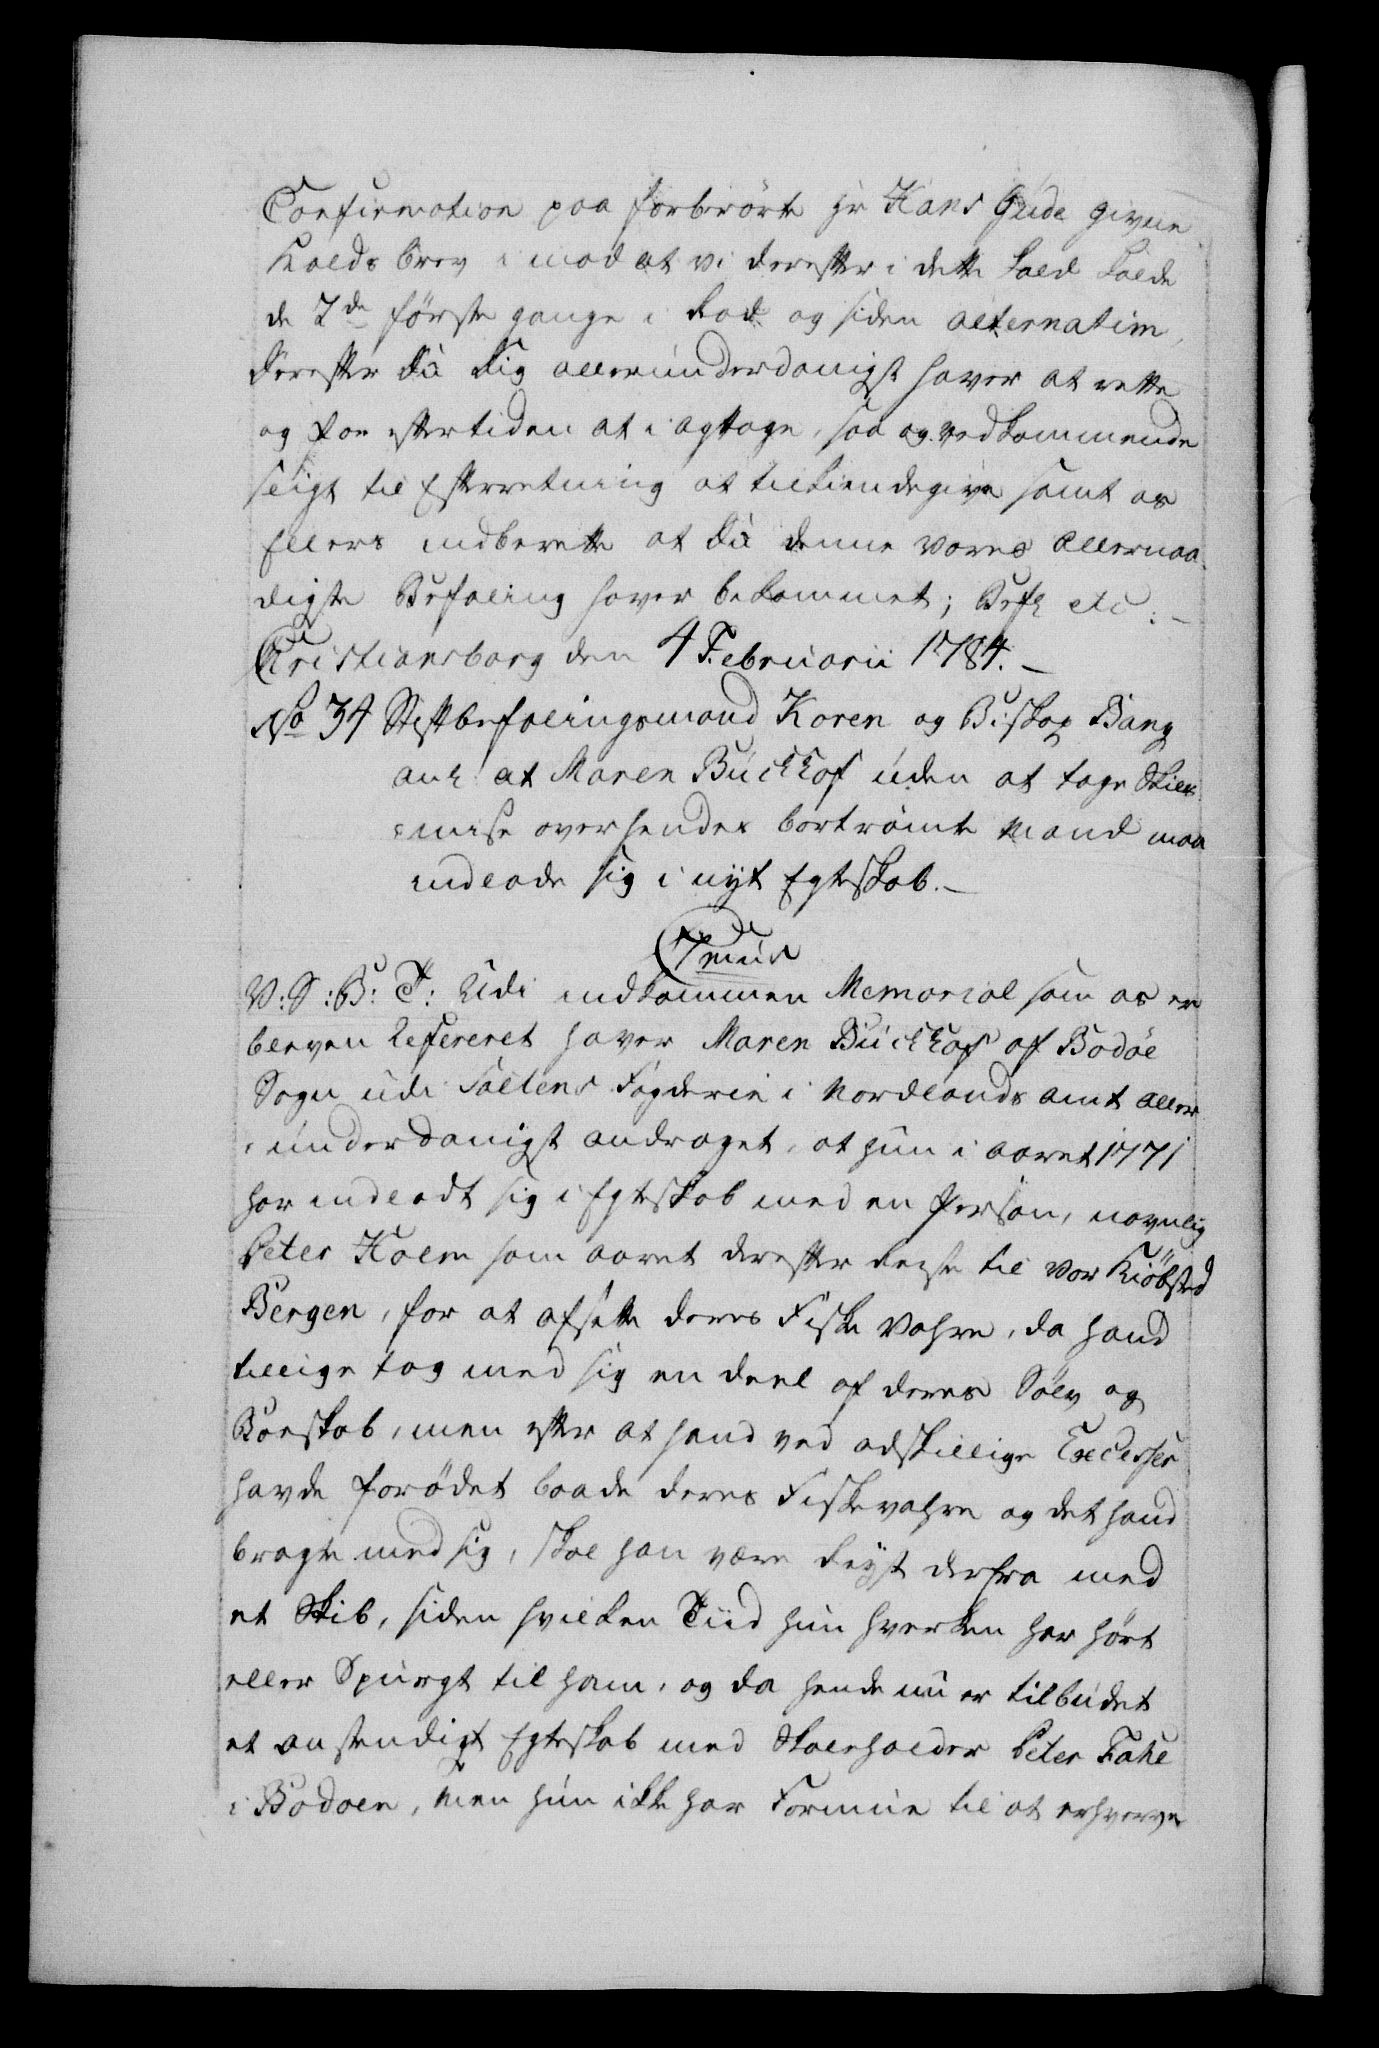 Confirmation paa forberörte Hr Hans Gude givne
Kalds brev imod at vi derefter i dette Kald kalde
de 2de förste gange i Rad og siden alternatim,
derefter du dig allerunderdanigst haver at rette
og for eftertiden at i agttage, saa og vedkommende
sligt til Efterretning at tilkiendegive samt os
Ellers indberette at du denne vores allernaa
digste Befaling haver bekommet; Befl etc:
Christiansborg den 4 Februarii 1784.
No 34 Stiftbefalingsmand Koren og Biskop Bang
anl at Maren Buckhof uden at tage Skils
misse over hendes bortrömte Mand maa
indlade sig i nyt Egteskab.
C 7mus
V: S: B: T: Udi indkommen Memorial som os er
bleven Refereret haver Maren Buckhof af Bodöe
Sogn udi Saltens Fogderie i Nordlands amt aller
underdanigst andraget, at hun i aaret 1771
har indladt sig i Egteskab med en Person, navnlig
Peter Holm som aaret derefter reiste til vor Kiöbsted
Bergen, for at afsætte deres Fiske Vahre, da hand
tillige tog med sig en deel af deres Sölv og
Boeskab, men efter at hand ved adskillige Excesser
havde forödet baade deres Fiskevahre og det hand
bragte med sig, skal han være Reyst derfra med
et Skib, siden hvilken Tiid hun hverken har hört
eller Spurgt til ham, og da hende nu er tilbudet
et anstendigt Egteskab med Skoeholder Peter Falie
i Bodoen, men hun ikke har Formue til at erhverve